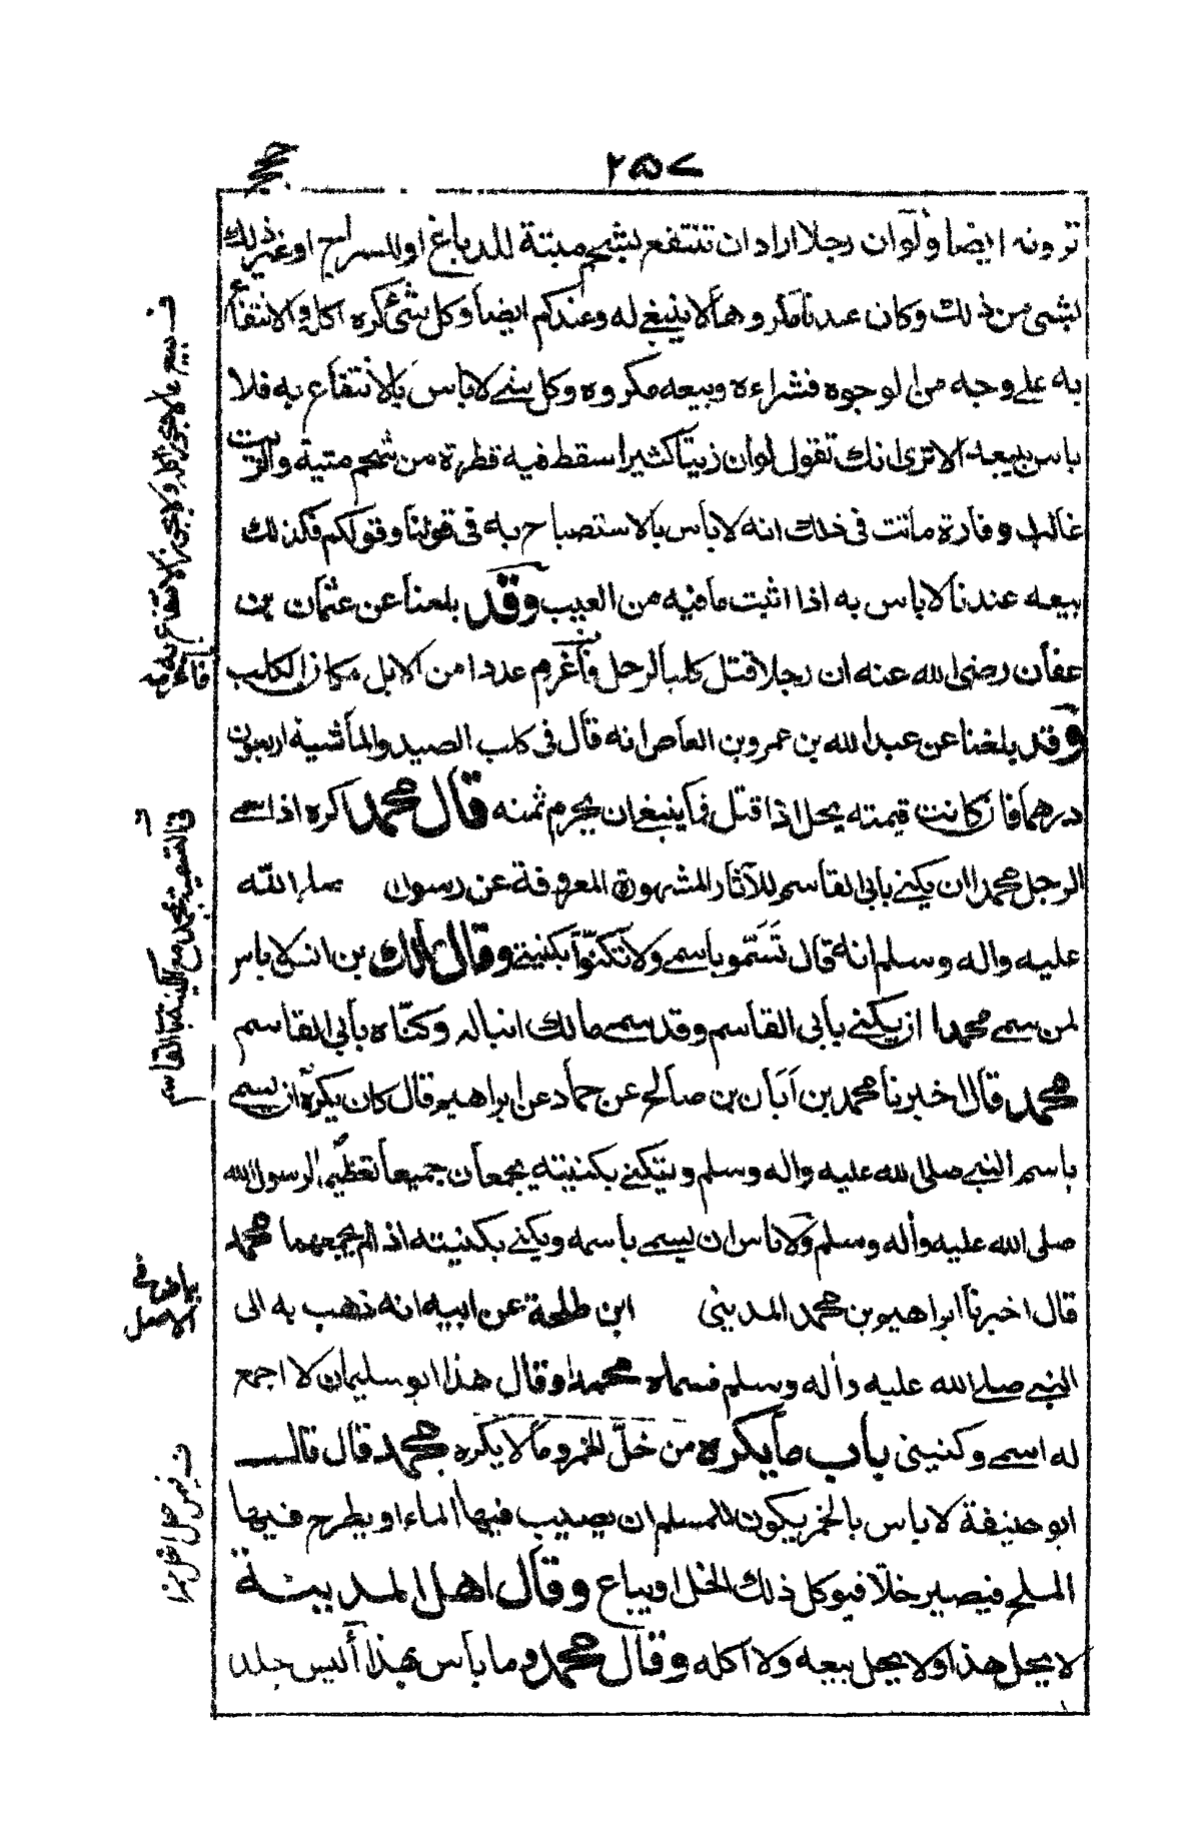 ٢٥٧
ترونه ايضا ولو ان رجلا اراد ان تنتفع بشحم ميتة للدباغ او للسراج او غير ذلك
بشئ من ذلك وكان عندنا مكروها لا ينبغي له وعندكم ايضا وكل شئ كره اكله والانتفاع
به على وجه من الوجوه فشراءه وبيعه مكروه وكل شي لا باس بالانتفاع به فلا
باس ببيعه الا ترى انك تقول لو ان زيتا كثيرا سقط فيه قطرة من شحم ميتة والزيت
غالب وفارة ماتت في ذلك انه لا باس بالاستصباح به في قولنا وقولكم فكذلك
بيعه عندنا لا باس به اذا اثبت ما فيه من العيب وقد بلغنا عن عثمان بن
عفان رضى الله عنه ان رجلا قتل كلبا لرجل فأغرم عددا من الابل مكان الكلب
وقد بلغنا عن عبد الله بن عمرو بن العاص انه قال في كلب الصيد والماشية اربعون
درهما فان كانت قيمته يحل اذا قتل فما ينبغي ان يحرم ثمنه قال محمد اكره اذا سمى
الرجل محمدا ان يكنى بابى القاسم للآثار المشهورة المعروفة عن رسول صلى الله
عليه واله وسلم انه قال تَسَمَّو باسمى ولا تكنّوا بكنيتى وقال مالك بن انس لا باس
لمن سمى محمدا ان يكنى بأبى القاسم وقد سمى مالك ابنا له وكنّاه بأبى القاسم
محمد قال اخبرنا محمد بن اَبَان بن صالح عن حماد عن ابراهيم قال كان يكره ان يسمى
باسم النبى صلى الله عليه واله وسلم ويتكنى بكنيته يجمعان جميعا تعظيما لرسول الله
صلى الله عليه وأله وسلم ولا باس ان يسمى باسمه ويكنى بكنيته اذا لم يجمعهما محمد
قال اخبرنا ابراهيم بن محمد المدينى ابن طلحة عن ابيه انه ذهب به الى
النبى صلى الله عليه واله وسلم فسماه محمدا وقال هذا ابو سليمان لا اجمع
له اسمى وكنيتى باب ما يكره من خلّ الخمر وما لا يكره محمد قال قالــ
ابو حنيفة لا باس بالخمر يكون للمسلم ان يصيب فيها الماء او يطرح فيها
الملح فيصير خلّا فيوكل ذلك الخل او يباع وقال اهل المدينة
لا يحل هذا ولا يحل بيعه ولا اكله وقال محمد وما بأس بهذا أليس جلد
ف بيع ما لا يجوز اكله ولا يجوز الانتفاع به
في التسمية بمحمد مع الكنية بابا القاسم
بياض في
الاصل